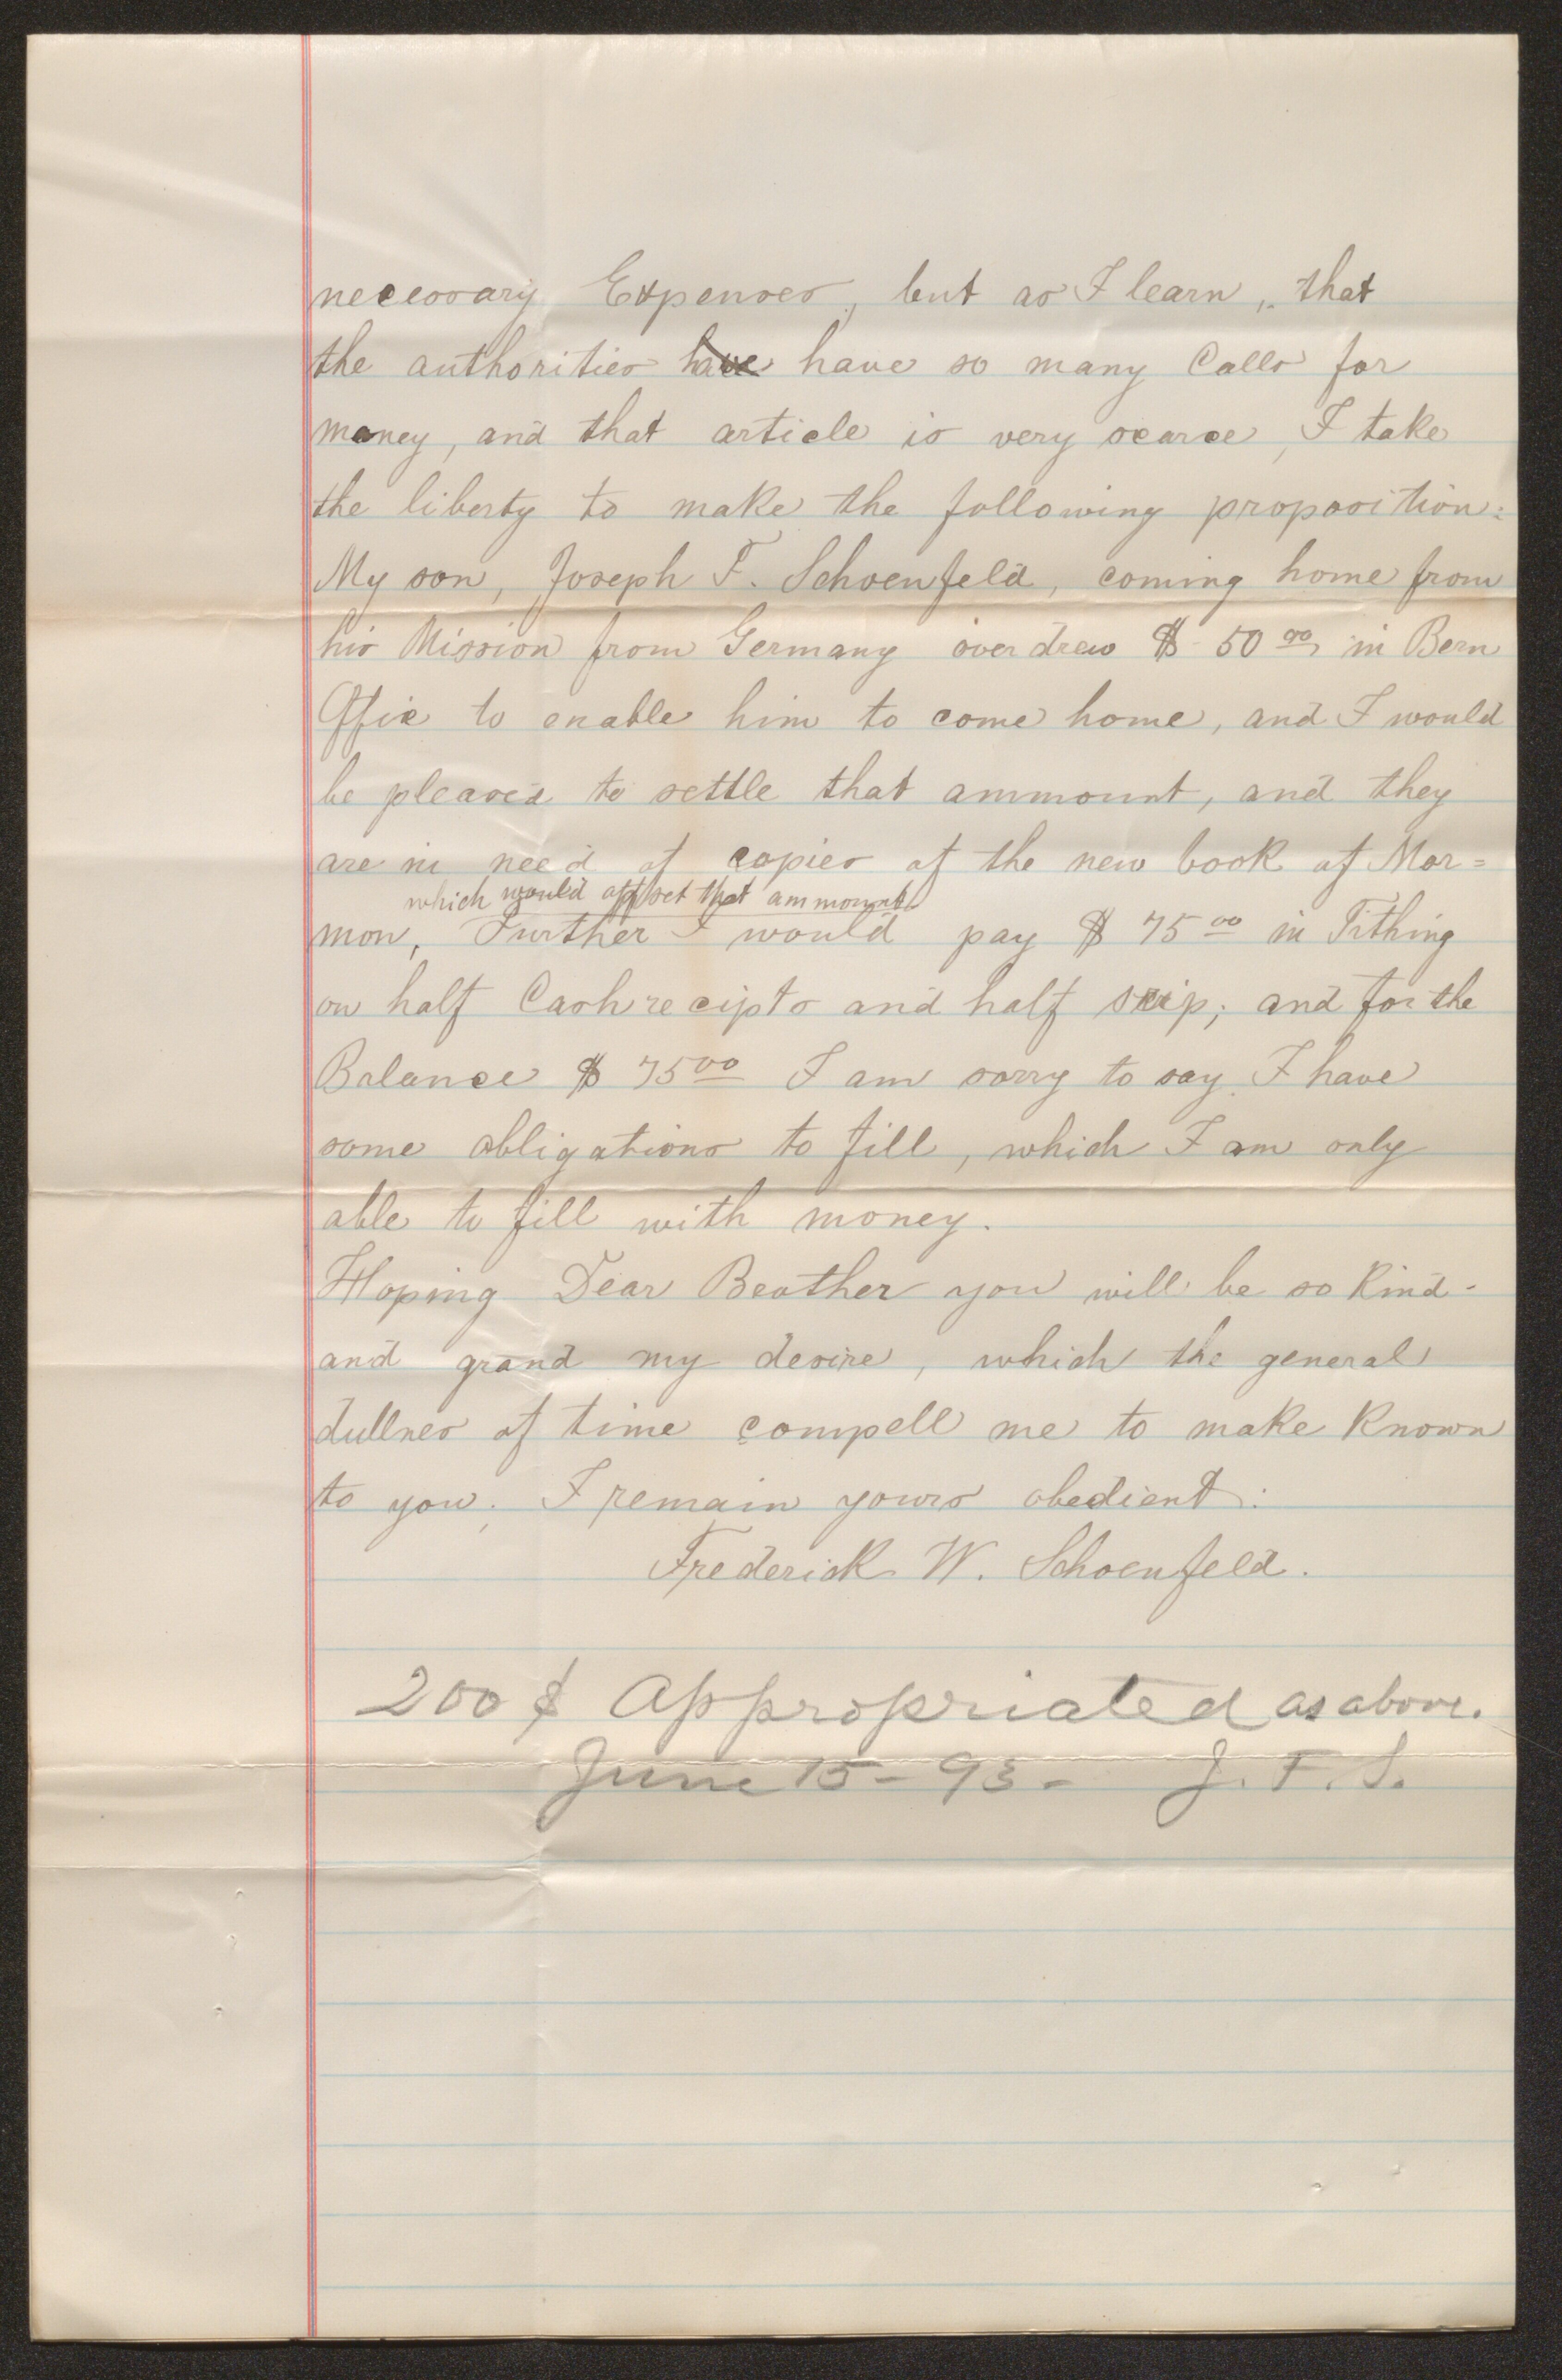 necessary Expenses, but as I learn, that
the authorities have have so many Calls for
money, and that article is very scarce, I take
the liberty to make the following proposition:
My son, Joseph F. Schoenfeld, coming home from
his Mission from Germany overdrew $ 50 00 in Bern
Offic to enable him to come home, and I would
be pleased to settle that ammount, and they
are in need of copies of the new book of Mor=
which would offset that ammount.
mon, Further I would pay $ 75 00 in Tithing
on half Cash recipts and half scrip; and for the
Balance $ 75 00 I am sorry to say I have
some obligations to fill, which I am only
able to fill with money.
Hoping Dear Brother you will be so Kind-
and grand my desire, which the general
dullnes of time compell me to make Known
to you; I remain yours obedient:
Frederick W. Schoenfeld.
200 $ Appropriated as above.
June 15 - 93 - J. F. S.